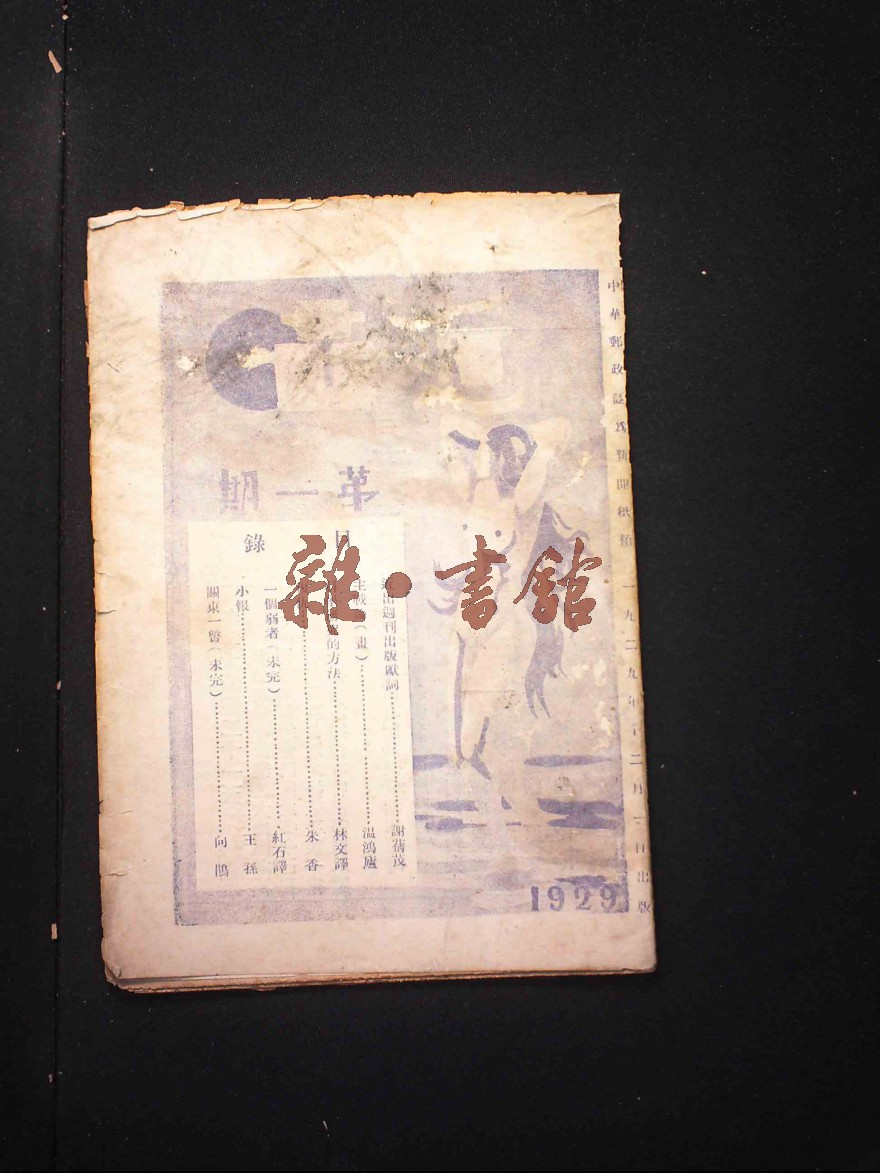 中華郵政認為新聞紙類 一九二九年十二月一日出版
第一期
目錄
出週刊出版獻詞 謝蒨茂
（畫） 温鴻廬
的方法 林文譯
朱香
一個弱者（未完） 紅石譯
小報 王孫
關東一瞥（未完） 向鵑
1929
雜·書館